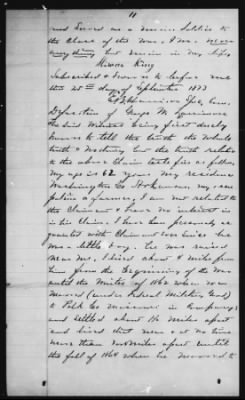 11
and served as a union soldier to
the close of the War, I was never
anything but union in my life,
Hiram King
Subscribed & sworn to before me
this 25th day of September 1873
Com.
Deposition of George M.
The said Witness being first duly
sworn to tell the truth the whole
truth & nothing but the truth relative
to the above Claim testifies as follows,
My age is 62 years, My residence
Washington Co Arkansas, my occu
pation a farmer, I am not related to
the Claimant & have no interest in
his Claim, I have been personally ac
quainted with Claimant ever since he
was a little boy. he was raised
near me, I lived about 4 miles from
him from the beginning of the War
until the winter of 1862 when we
moved (under Federal Military
to Polk Co Missouri in Company
and settled about 1½ miles apart
and lived that near & at no time
more than two miles apart until
the fall of 1864 when he moved to